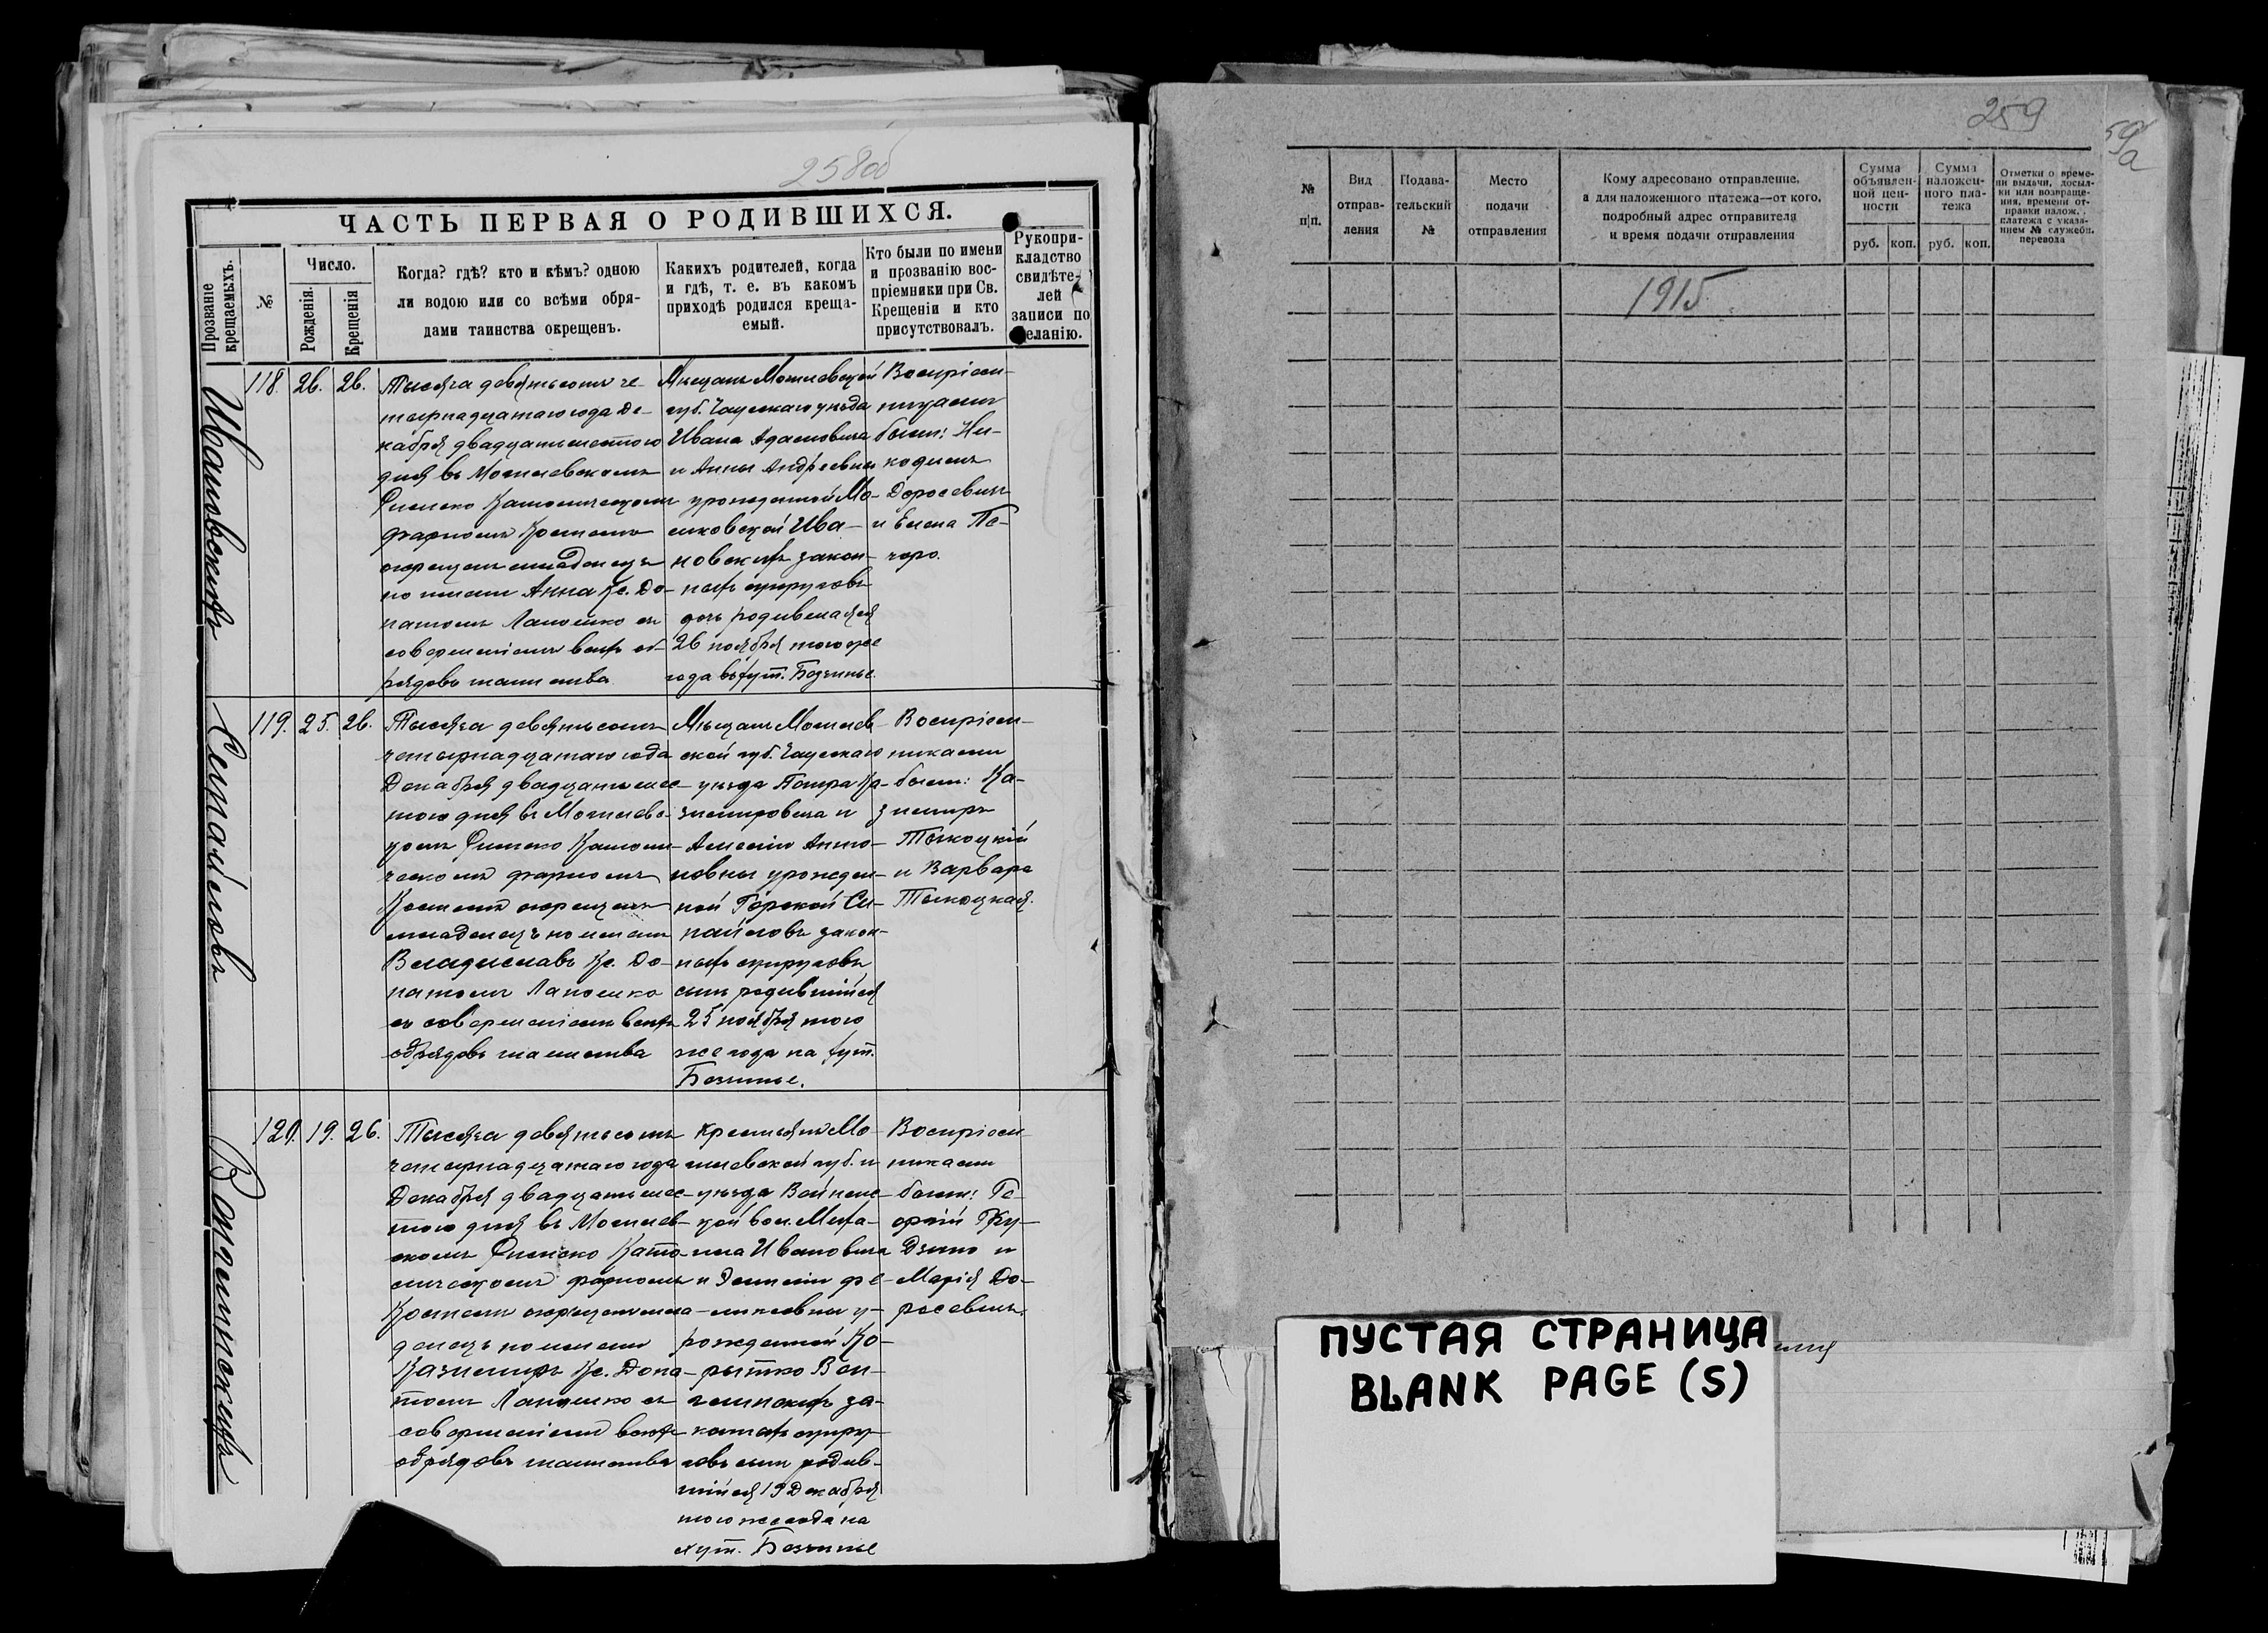 258об
ЧАСТЬ ПЕРВАЯ О РОДИВШИХСЯ.
Прозваніе крещаемыхъ.
№
Число.
Рожденія.
Крещенія
Когда? гдѣ? кто и кѣмъ? одною
ли водою или со всѣми обря-
дами таинства окрещенъ.
Какихъ родителей, когда
и гдѣ, т. е. въ какомъ
приходѣ родился креща-
емый.
Кто были по имени
и прозванію вос-
пріемники при Св.
Крещеніи и кто
присутствовалъ.
Рукопри-
кладство
свидѣте-
лей
записи по
еланію.
118. 26. 26.
Тысяча девятьсотъ че-
тырнадцатаго года Де-
кабря двадцатьшестого
дня въ Могилевскомъ
Римско Католическомъ
фарномъ Костелѣ
окрещенъ младенецъ
по имени Анна Кс. До-
натомъ Лапошко съ
совершеніемъ всѣхъ об-
рядовъ таинства
Мѣщанъ Могилевской
губ. Чаусскаго уѣзда
Ивана Адамовича
и Анны Андреевны
урожденной Ма-
ховской Ива-
новскихъ закон-
ныхъ супруговъ
дочь родившаяся
26 ноября того же
года въ хут.
Воспріем-
никами
были: Ни-
кодимъ
Доросевичъ
и Елена Пе-
чоро.
119. 25. 26.
Тысяча девятьсотъ
четырнадцатаго года
Декабря двадцатьшес-
того дня въ Могилевс-
комъ Римско Католи-
ческомъ фарномъ
Костелѣ окрещенъ
младенецъ по имени
Владиславъ Кс. До-
натомъ Лапошко
съ совершеніемъ всѣхъ
обрядовъ таинства
Мѣщанъ Могилев-
ской губ. Чаусскаго
уѣзда Петра Ка-
зимировича и
Анто-
новны урожден-
ной Горской Си-
пайловъ закон-
ныхъ супруговъ
сынъ родившійся
25 ноября того
же года на хут.
Воспріем-
никами
были: Ка-
зимиръ
Тыкоцкій
и Варвара
Тыкоцкая.
120. 19. 26.
Тысяча девятьсотъ
четырнадцатаго года
Декабря двадцатьшес-
того дня въ Могилев-
скомъ Римско Като-
лическомъ фарномъ
Костелѣ окрещенъ мла-
денецъ по имени
Казимиръ Кс. Дона-
томъ Лапошко съ
совершеніемъ всѣхъ
обрядовъ таинства
Крестьянъ Мо-
гилевской губ. и
уѣзда
кой вол. Миха-
ила Ивановича
и Фе-
ликсовны у-
рожденной Ко-
рытко
за-
конныхъ супру-
говъ сынъ родив-
шійся 19 Декабря
того же года на
хут.
Воспріем-
никами
были: Ге-
оргій
и
Марія До-
росевичъ.
259
59а
№ п/п.
Вид отправ- ления
Подава- тельский №
Место подачи отправления
Кому адресовано отправление,
а для наложенного платежа—от кого,
подробный адрес отправителя
и время подачи отправления
Сумма объявлен- ной цен- ности
руб. коп.
Сумма наложен- ного пла- тежа
руб. коп.
Отметки о време-
ни выдачи, досыл-
ки или возвраще-
ния, времени от-
правки налож.
платежа с указа-
нием № служебн.
перевода
1915
ПУСТАЯ СТРАНИЦА
BLANK PAGE (S)